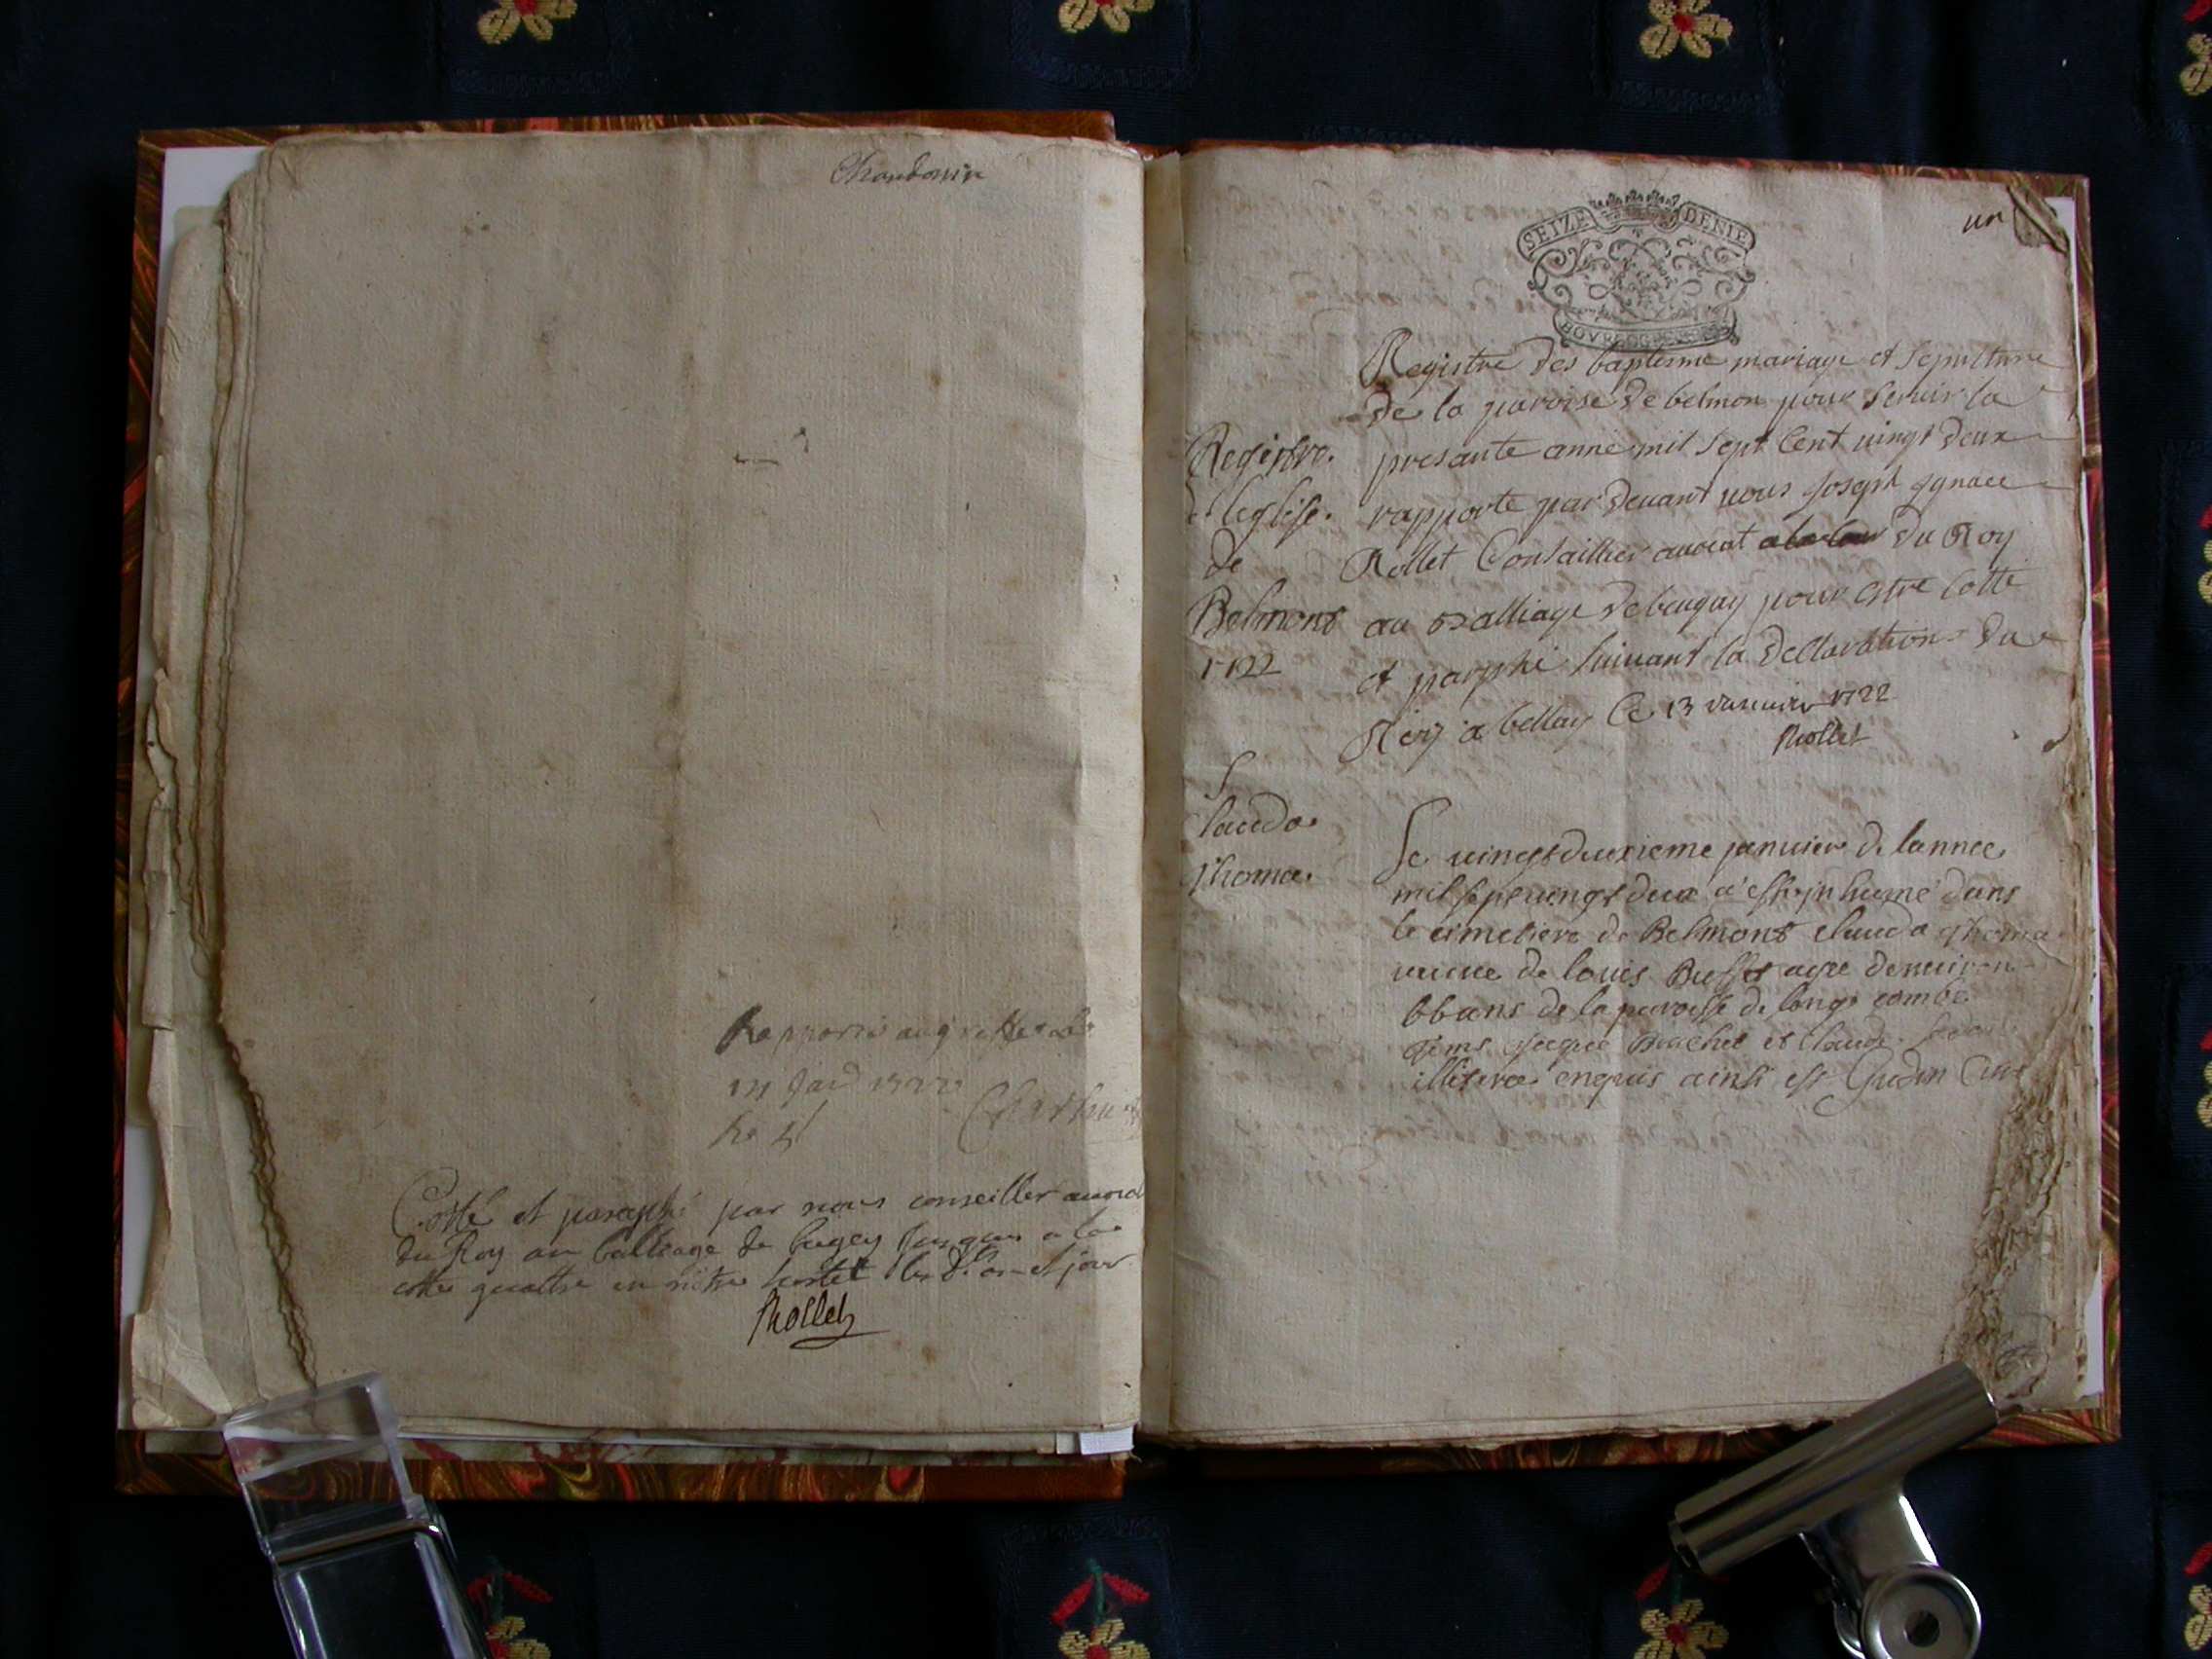 Chaudonin
Rapporté au greffe le
Cotté et paraphé par nous conseiller avocat
du Roy au balliage de bugey jusques a la
cotte quattre en nôtre hostel les d. an et jour
Rollet
un
SEIZE DENIE
BOVRGOGNE
Registre des baptesme mariage et sepulture
de la paroise de belmon pour servir la
presante anné mil sept cent vingt deux
rapporte par devant nous Joseph Ignace
Rollet Consaillier avocat du Roy
au balliage de beugay pour estre cotté
et parphé suivant la declaration du
Roy a bellay Ce 13 januier 1722
Rollet
Registre.
de leglise.
de
Belmont
1722
Clauda
Thoma.
Le vingtdeuxieme januier de lannee
mil sept vingt deux a esté inhumé dans
le cimetiere de Belmont clauda thoma
veuve de louis Buffet agée denuiron
66 ans de la paroisse de longe combe
tems Jacque Brachet et Claude
illiteres enquis ainsi est Gudin Curé